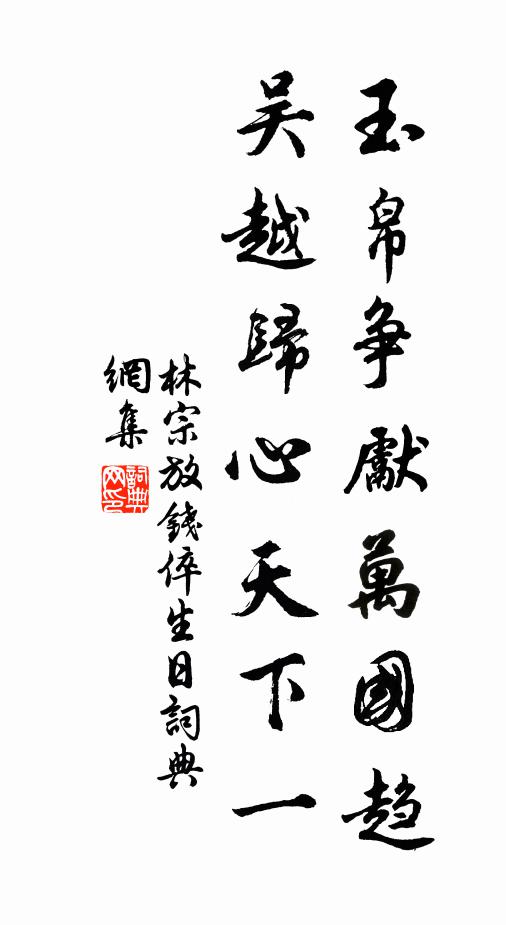 玉帛争獻萬國趨
吴越歸心天下一
林宗放錢倅生日詞典
網集
詞典
网印